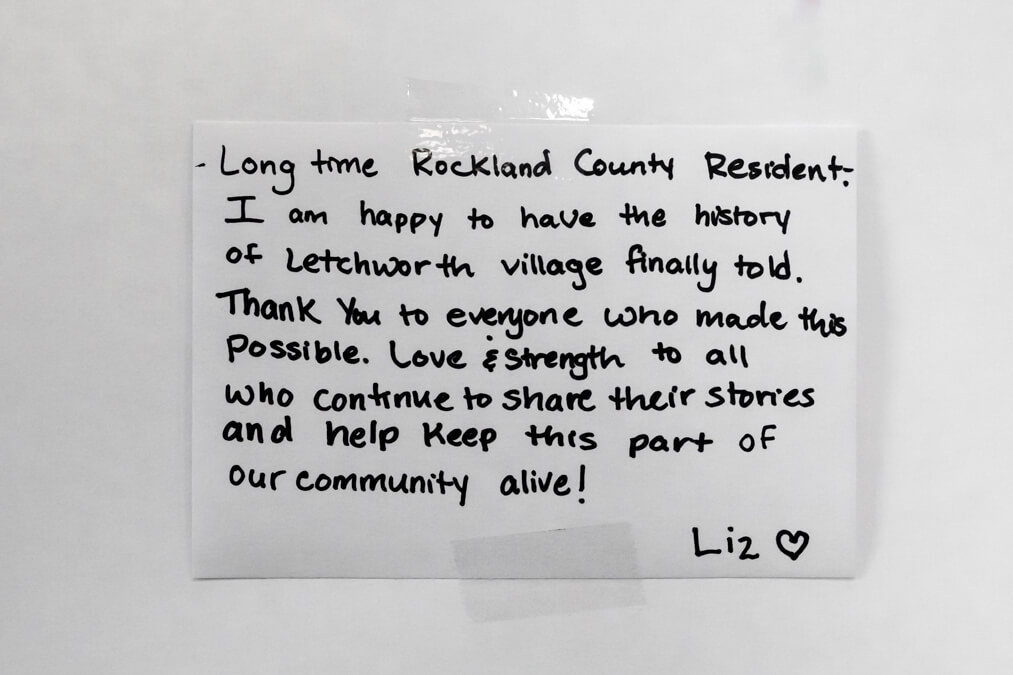 - Long time Rockland County Resident -
I am happy to have the history
of Letchworth village finally told.
Thank You to everyone who made this
Possible. Love & strength to all
who continue to share their stories
and help keep this part of
our community alive!
Liz ♡